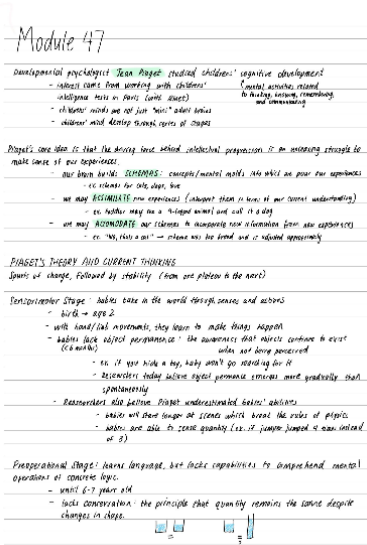 Module 47
Developmental psychologist Jean Piaget studied childrens' cognitive development
- interest came from working with childrens'
(mental activities related
to thinking, knowing, remembering,
and communicating
intelligence tests in Paris
- childrens' minds are not just "mini" adult brains
- childrens' mind develop through series of stages
Piaget's core idea is that the driving force behind intellectual progression is an unceasing struggle to
make sense of our experiences.
- our brain builds SCHEMAS: concepts/mental molds into which we pour our experiences
- ex. schemas for cats, dogs, love
- we may ASSIMILATE new experiences (interpret them in terms of our current understanding)
- ex. toddler may see a 4-legged animal and call it a dog
- we may ACCOMODATE our schemas to incorporate new information from new experiences
- ex. "No, thats a cat" → schema was too broad and is adjusted
PIAGET'S THEORY AND CURRENT THINKING
Spurts of change, followed by stability (from one plateau to the next)
Sensorimotor Stage: babies take in the world through senses and actions
- birth → age 2
- with hand/limb movements, they learn to make things happen
- babies lack object permanence: the awareness that objects continue to exist
(<6 months)
when not being perceived
- ex. if you hide a toy, baby won't go searching for it
- Researchers today believe object permance emerges more gradually than
spontaneously
- Researchers also believe Piaget underestimated babies' abilities
- babies will stare longer at scenes which break the rules of physics
- babies are able to sense quantity (ex. if jumper jumped 4 times instead
of 3)
Preoperational Stage: learns language, but lacks capabilities to comprehend mental
operations of concrete logic.
- until 6-7 years old
- lacks conservation: the principle that quantity remains the same despite
changes in shape.
= =
?